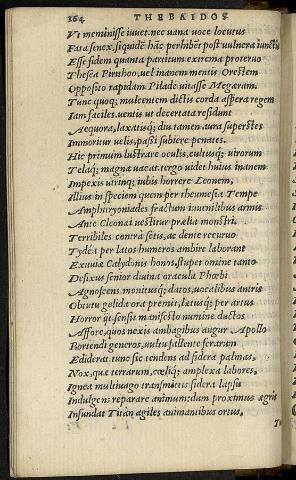 164 THEBAIDOS
Vt meminisse iuuet. nec uana uoce locutus
Fata senex, siquidē hāc perhibēt post uulnera iunctis
Esse fidem quanta partitum extrema proteruo
Thesea Pirithoo, uel inanem mentis Orestem
Opposito rapidam Pilade uitasse Megaram.
Tunc quoq; mulcentem dictis corda aspera regem
Iam faciles. uentis ut decertata residunt
Aequora, laxatisq; diu tamen aura superstes
Immoritur uelis, passi subiere penates.
Hic primum lustrare oculis, cultusq; uirorum
Telaq; magna uacat. tergo uidet huius inanem
Impexis utrinq; iubis horrere Leonem,
Illius in speciem quem per theumesia Tempe
Amphitryoniades fractum iuuenilibus armis
Ante Cleonæi uestitur prælia monstri.
Terribiles contra setis, ac dente recuruo
Tydea per latos humeros ambire laborant
Exuuiæ Calydonis honos, stupet omine tanto
Defixus senior diuina oracula Phœbi
Agnoscens. monitusq; datos, uocalibus antris
Obtutu gelida ora premit, lætusq; per artus
Horror ijt. sensit manifesto numine ductos
Affore, quos nexis ambagibus augur Apollo
Portendi generos, uultu fallente ferarum
Ediderat. tunc sic tendens ad sidera palmas,
Nox, quæ terrarum, cœliq; amplexa labores,
Ignea multiuago transmittis sidera lapsu
Indulgens reparare animum: dum proximus ægris
Infundat Titan agiles animantibus ortus,